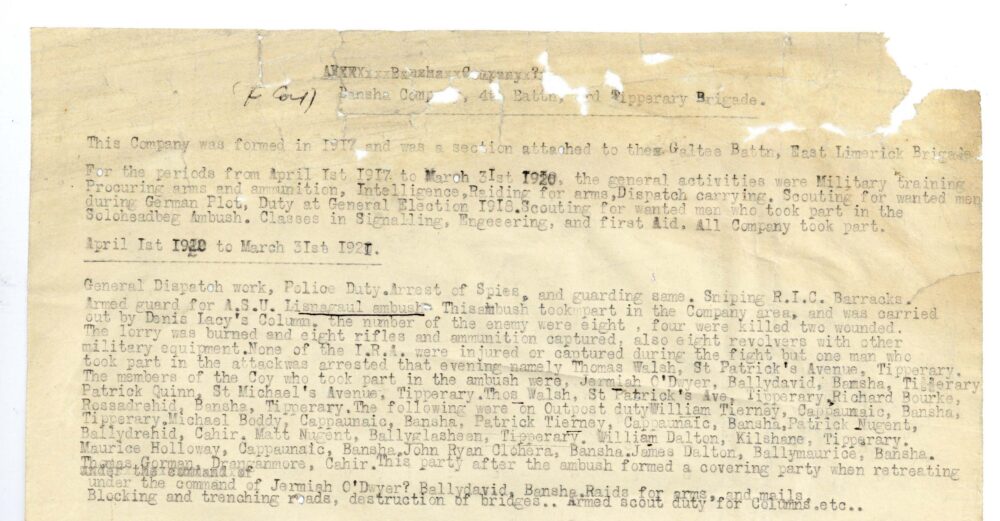 Bansha Company ?
(F Coy)
Bansha Company, 4th Battn, 3rd Tipperary Brigade.
This Company was formed in 1917 and was a section attached to the Galtee Battn, East Limerick Brigade
For the periods from April 1st 1917 to March 31st 1920, the general activities were Military training
Procuring arms and ammunition, Intelligence,Raiding for arms,Dispatch carrying. Scouting for wanted men
during German Plot, Duty at General Election 1918.Scouting for wanted men who took part in the
Soloheadbeg Ambush. Classes in Signalling, Engeering, and first Aid. All Company took part.
April 1st 1920 to March 31st 1921.
General Dispatch work, Police Duty.Arrest of Spies, and guarding same. Sniping R.I.C. Barracks.
Armed guard for A.S.U. Lisnagaul ambush. This ambush took part in the Company area, and was carried
out by Denis Lacy's Column. the number of the enemy were eight , four were killed two wounded.
The lorry was burned and eight rifles and ammunition captured, also eight revolvers with other
military equipment.None of the I.R.A. were injured or captured during the fight but one man who
took part in the attackwas arrested that evening namely Thomas Walsh, St Patrick's Avenue, Tipperary.
The members of the Coy who took part in the ambush were, Jermiah O'Dwyer, Ballydavid, Bansha, Tipperary
Patrick Quinn, St Michael's Avenue, Tipperary.Thos Walsh, St Patrick's Ave, Tipperary.Richard Bourke,
Rossadrehid, Bansha, Tipperary.The following were on Outpost dutyWilliam Tierney, Cappaunaic, Bansha,
Tipperary.Michael Boddy, Cappaunaic, Bansha, Patrick Tierney, Cappaunaic, Bansha,Patrick Nugent,
Ballydrehid, Cahir. Matt Nugent, Ballyglasheen, Tipperary. William Dalton, Kilshane, Tipperary.
Maurice Holloway, Cappaunaic, Bansha.John Ryan Clohera, Bansha.James Dalton, Ballymaurice, Bansha.
Thomas Gorman, Dranganmore, Cahir.This party after the ambush formed a covering party when retreating
under the command of Jermiah O'Dwyer? Ballydavid, Bansha.Raids for arms, and mails,
Blocking and trenching roads, destruction of bridges.. Armed scout duty for Columns.etc..